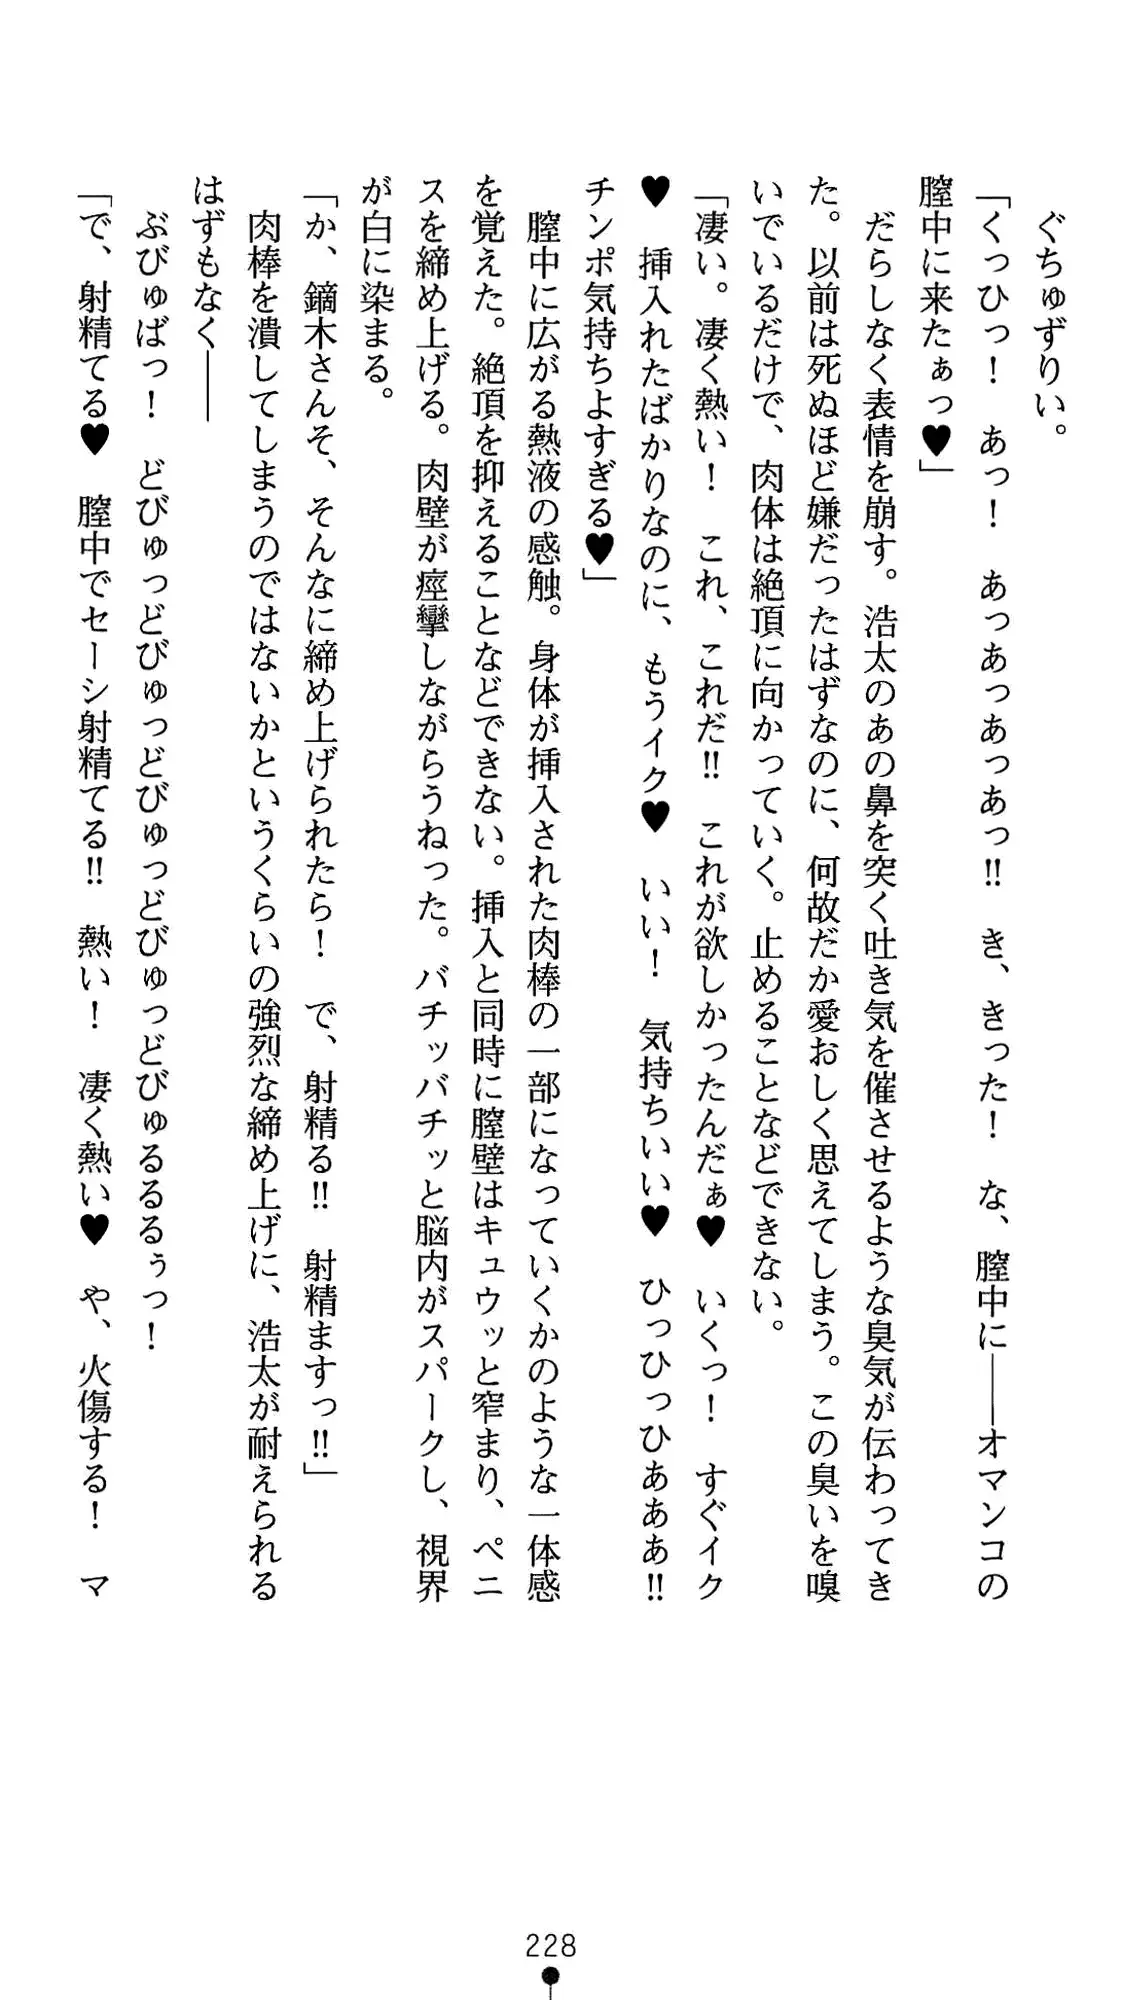 ぐちゅずりぃ。
「くっひっ！　あっ！　あっあっあっあっ‼　き、きった！　な、膣中に――オマンコの
膣中に来たぁっ♥」
だらしなく表情を崩す。浩太のあの鼻を突く吐き気を催させるような臭気が伝わってき
た。以前は死ぬほど嫌だったはずなのに、何故だか愛おしく思えてしまう。この臭いを嗅
いでいるだけで、肉体は絶頂に向かっていく。止めることなどできない。
「凄い。凄く熱い！　これ、これだ‼　これが欲しかったんだぁ♥　いくっ！　すぐイク
♥　挿入れたばかりなのに、もうイク♥　いい！　気持ちいい♥　ひっひっひあああ‼
チンポ気持ちよすぎる♥」
膣中に広がる熱液の感触。身体が挿入された肉棒の一部になっていくかのような一体感
を覚えた。絶頂を抑えることなどできない。挿入と同時に膣壁はキュウッと窄まり、ペニ
スを締め上げる。肉壁が痙攣しながらうねった。バチッバチッと脳内がスパークし、視界
が白に染まる。
「か、鏑木さんそ、そんなに締め上げられたら！　で、射精る‼　射精ますっ‼」
肉棒を潰してしまうのではないかというくらいの強烈な締め上げに、浩太が耐えられる
はずもなく――
ぶびゅばっ！　どびゅっどびゅっどびゅっどびゅっどびゅるるるぅっ！
「で、射精てる♥　膣中でセーシ射精てる‼　熱い！　凄く熱い♥　や、火傷する！　マ
228